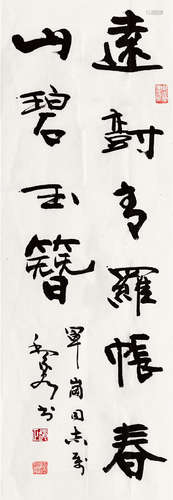 遠對青羅帳春
山碧玉簪
軍崗同志屬